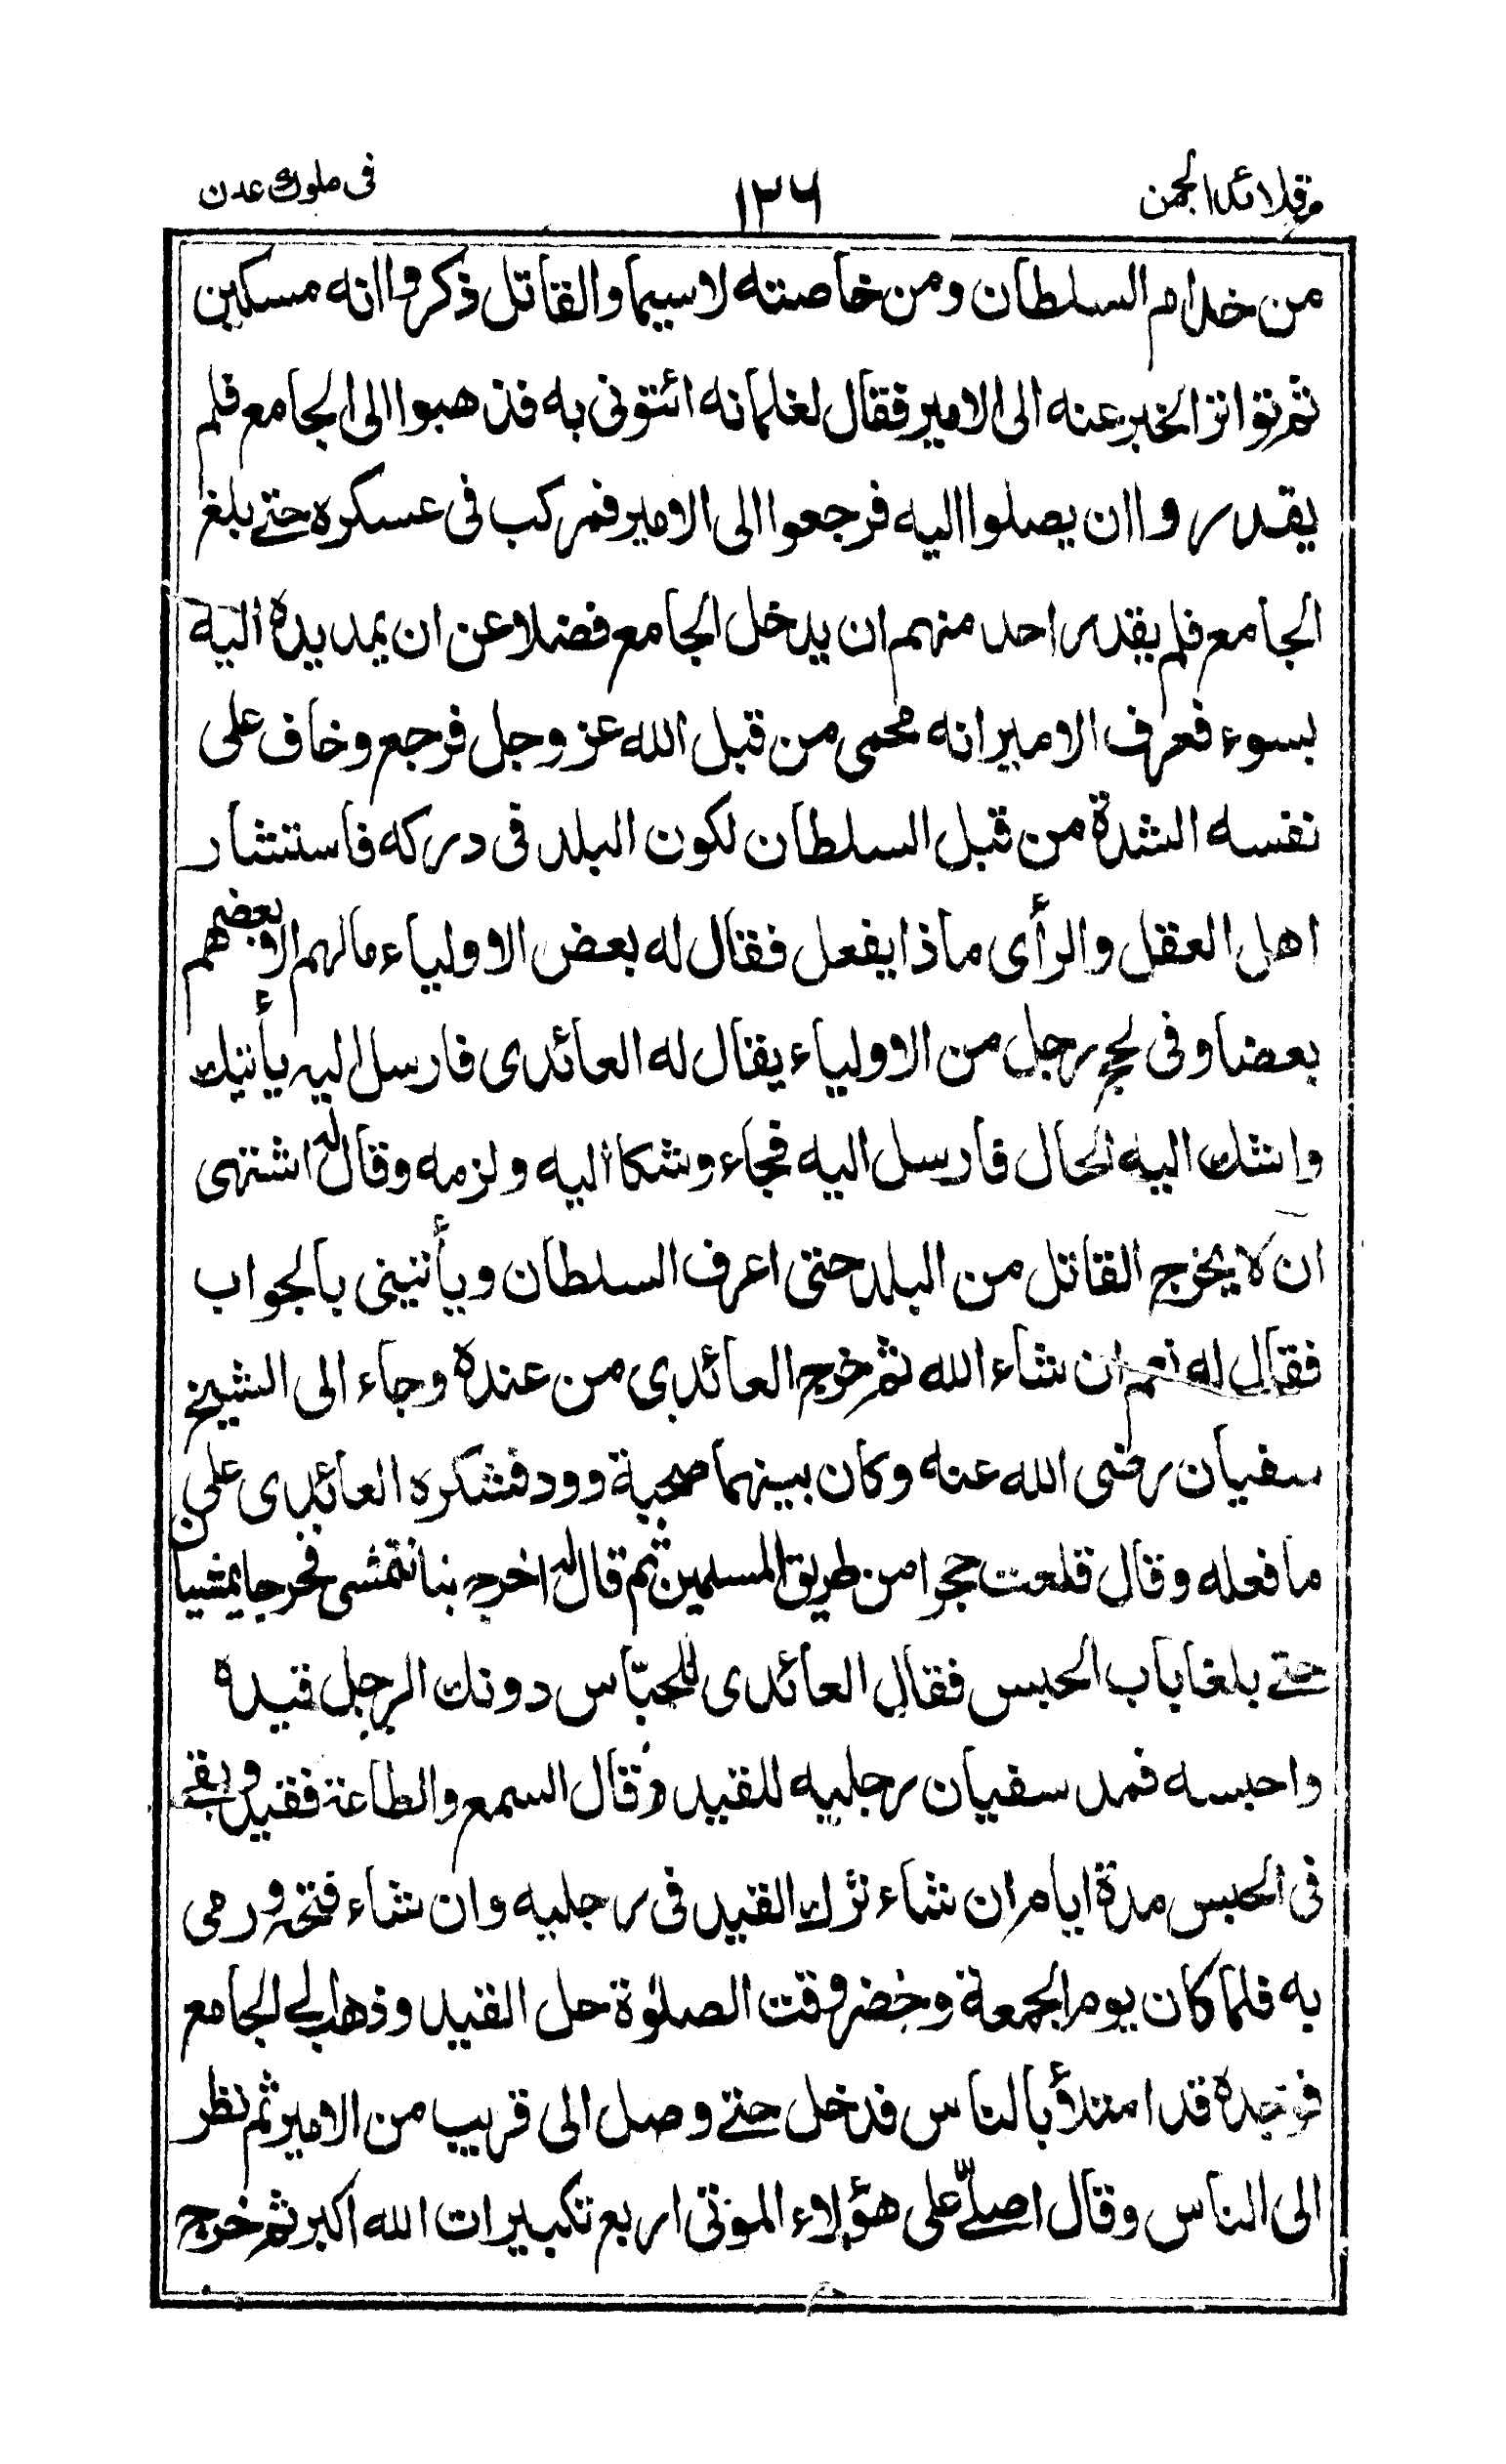 قلائد الجمن
١٢٦
فى ملوك عدن
من خدام السلطان ومن خاصته لاسيما والقاتل ذكروا انه مسكين
ثم تواتر الخبر عنه الى الامير فقال لغلمانه ائتونى به فذهبوا الى الجامع فلم
يقدروا ان يصلوا اليه فرجعوا الى الامير فركب فى عسكره حتى بلغ
الجامع فلم يقدر احد منهم ان يدخل الجامع فضلا عن ان يمد يده اليه
بسوء فعرف الامير انه محمى من قبل الله عز وجل فرجع وخاف على
نفسه الشدة من قبل السلطان لكون البلد فى دركه فاستشار
اهل العقل والرأى ماذا يفعل فقال له بعض الاولياء مالهم الا بعضهم
بعضا وفى لحج رجل من الاولياء يقال له العائدى فارسل اليه يأتيك
واشك اليه الحال فارسل اليه فجاء وشكا اليه ولزمه وقال له اشتهى
ان لا يخرج القاتل من البلد حتى اعرف السلطان ويأتينى بالجواب
فقال له نعم ان شاء الله ثم خرج العائدى من عنده وجاء الى الشيخ
سفيان رضى الله عنه وكان بينهما صحبة وود فشكره العائدى على
ما فعله وقال قلعت حجرا من طريق المسلمين ثم قال له اخرج بنا نتمشى فخرجا يمشيان
حتى بلغا باب الحبس فقال العائدى للحبّاس دونك الرجل قيده
واحبسه فمد سفيان رجليه للقيد وقال السمع والطاعة فقيد وبقى
فى الحبس مدة ايام ان شاء ترك القيد فى رجليه وان شاء فتحه ورمى
به فلما كان يوم الجمعة وحضر وقت الصلوة حل القيد وذهب الى الجامع
فوجده قد امتلأ بالناس فدخل حتى وصل الى قريب من الامير ثم نظر
الى الناس وقال اصلّى على هؤلاء الموتى اربع تكبيرات الله اكبر ثم خرج